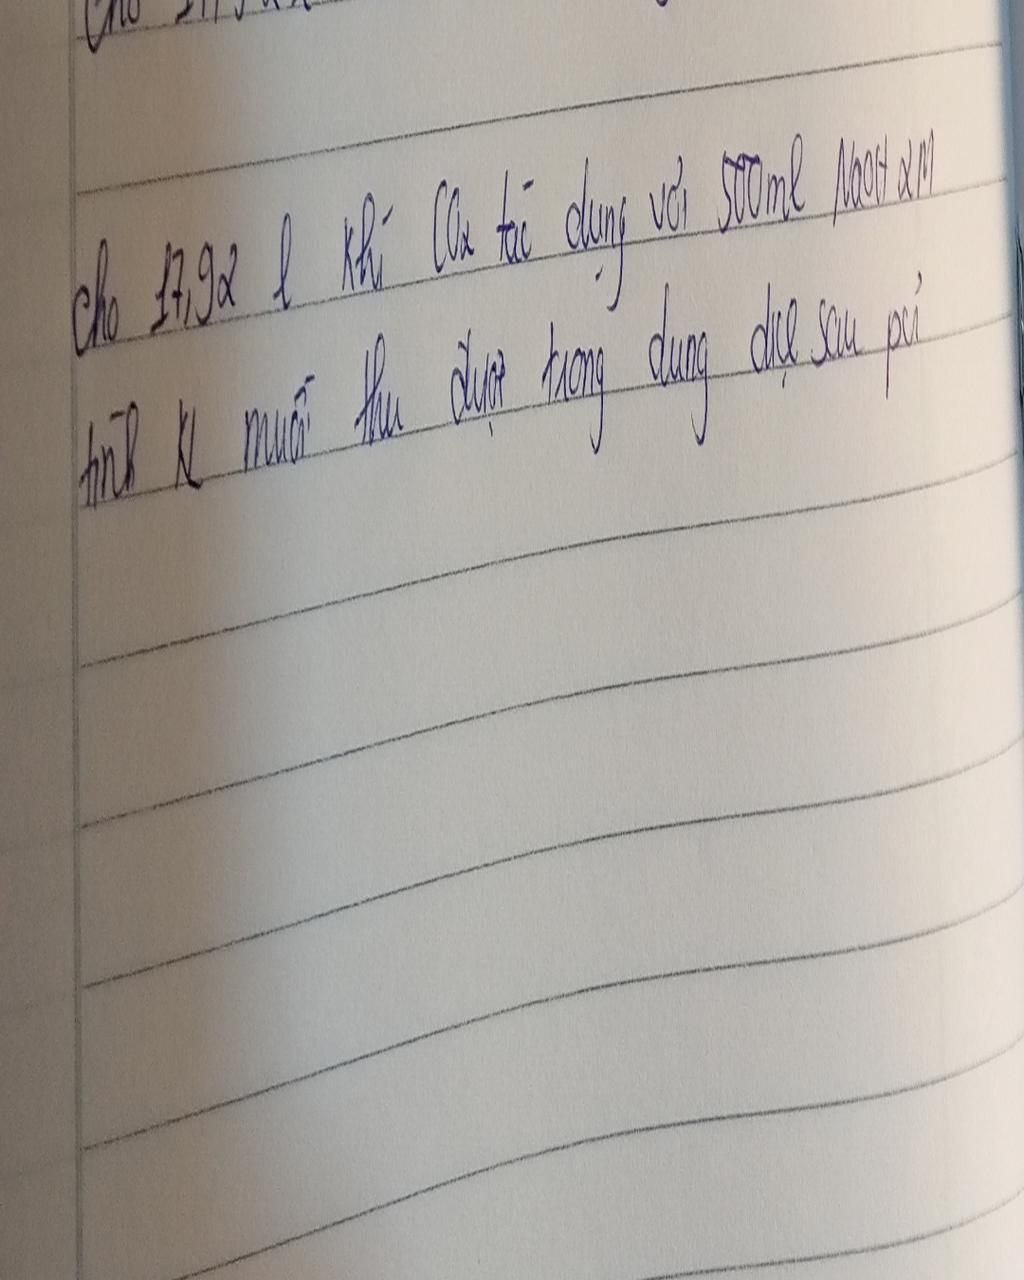 cho
cho 17,92 l khí CO2 tác dụng với 500ml NaOH 2M
tính Kl muối thu được trong dung dịch sau pứ